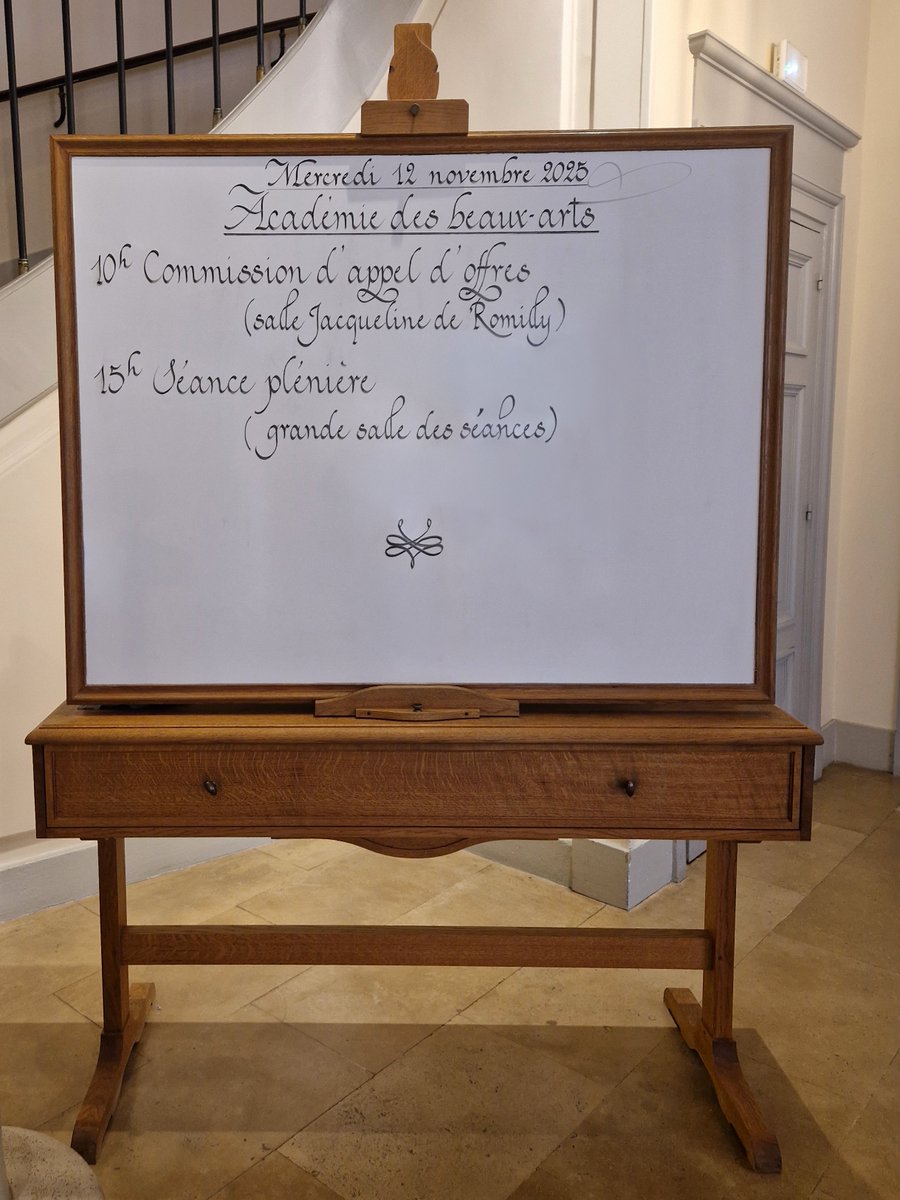 Mercredi 12 novembre 2025
Académie des beaux-arts
10h Commission d'appel d'offres
(salle Jacqueline de Romilly)
15h Séance plénière
(grande salle des séances)